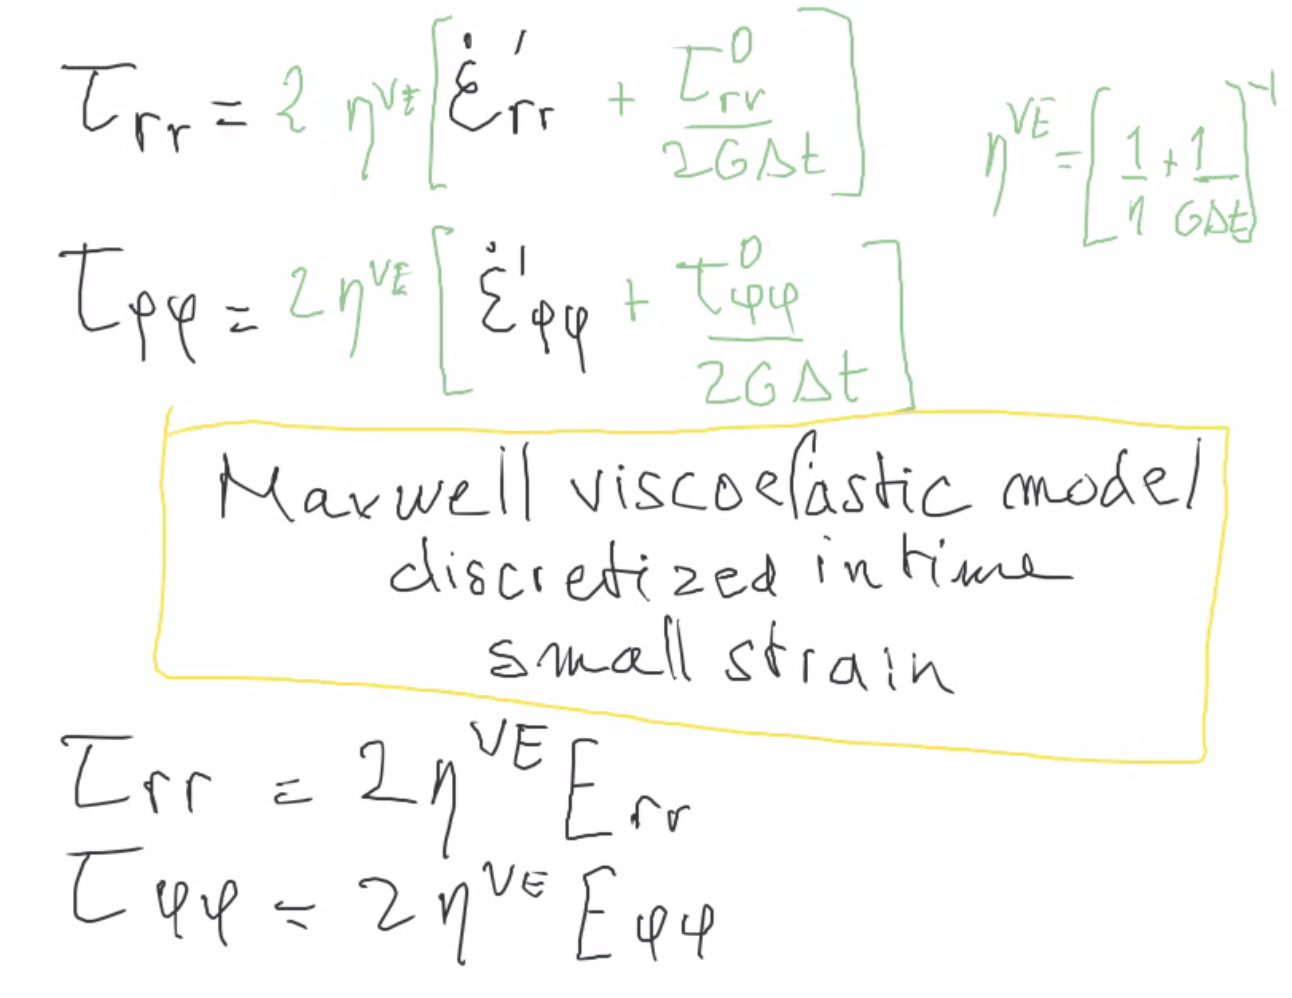 τ_rr = 2 η^VE [ ε̇'_rr + τ^0_rr / 2GΔt ]
η^VE = [ 1/η + 1/GΔt ]^-1
τ_φφ = 2η^VE [ ε̇'_φφ + τ^0_φφ / 2GΔt ]
Maxwell viscoelastic model
discretized in time
small strain
τ_rr = 2η^VE E_rr
τ_φφ = 2η^VE E_φφ